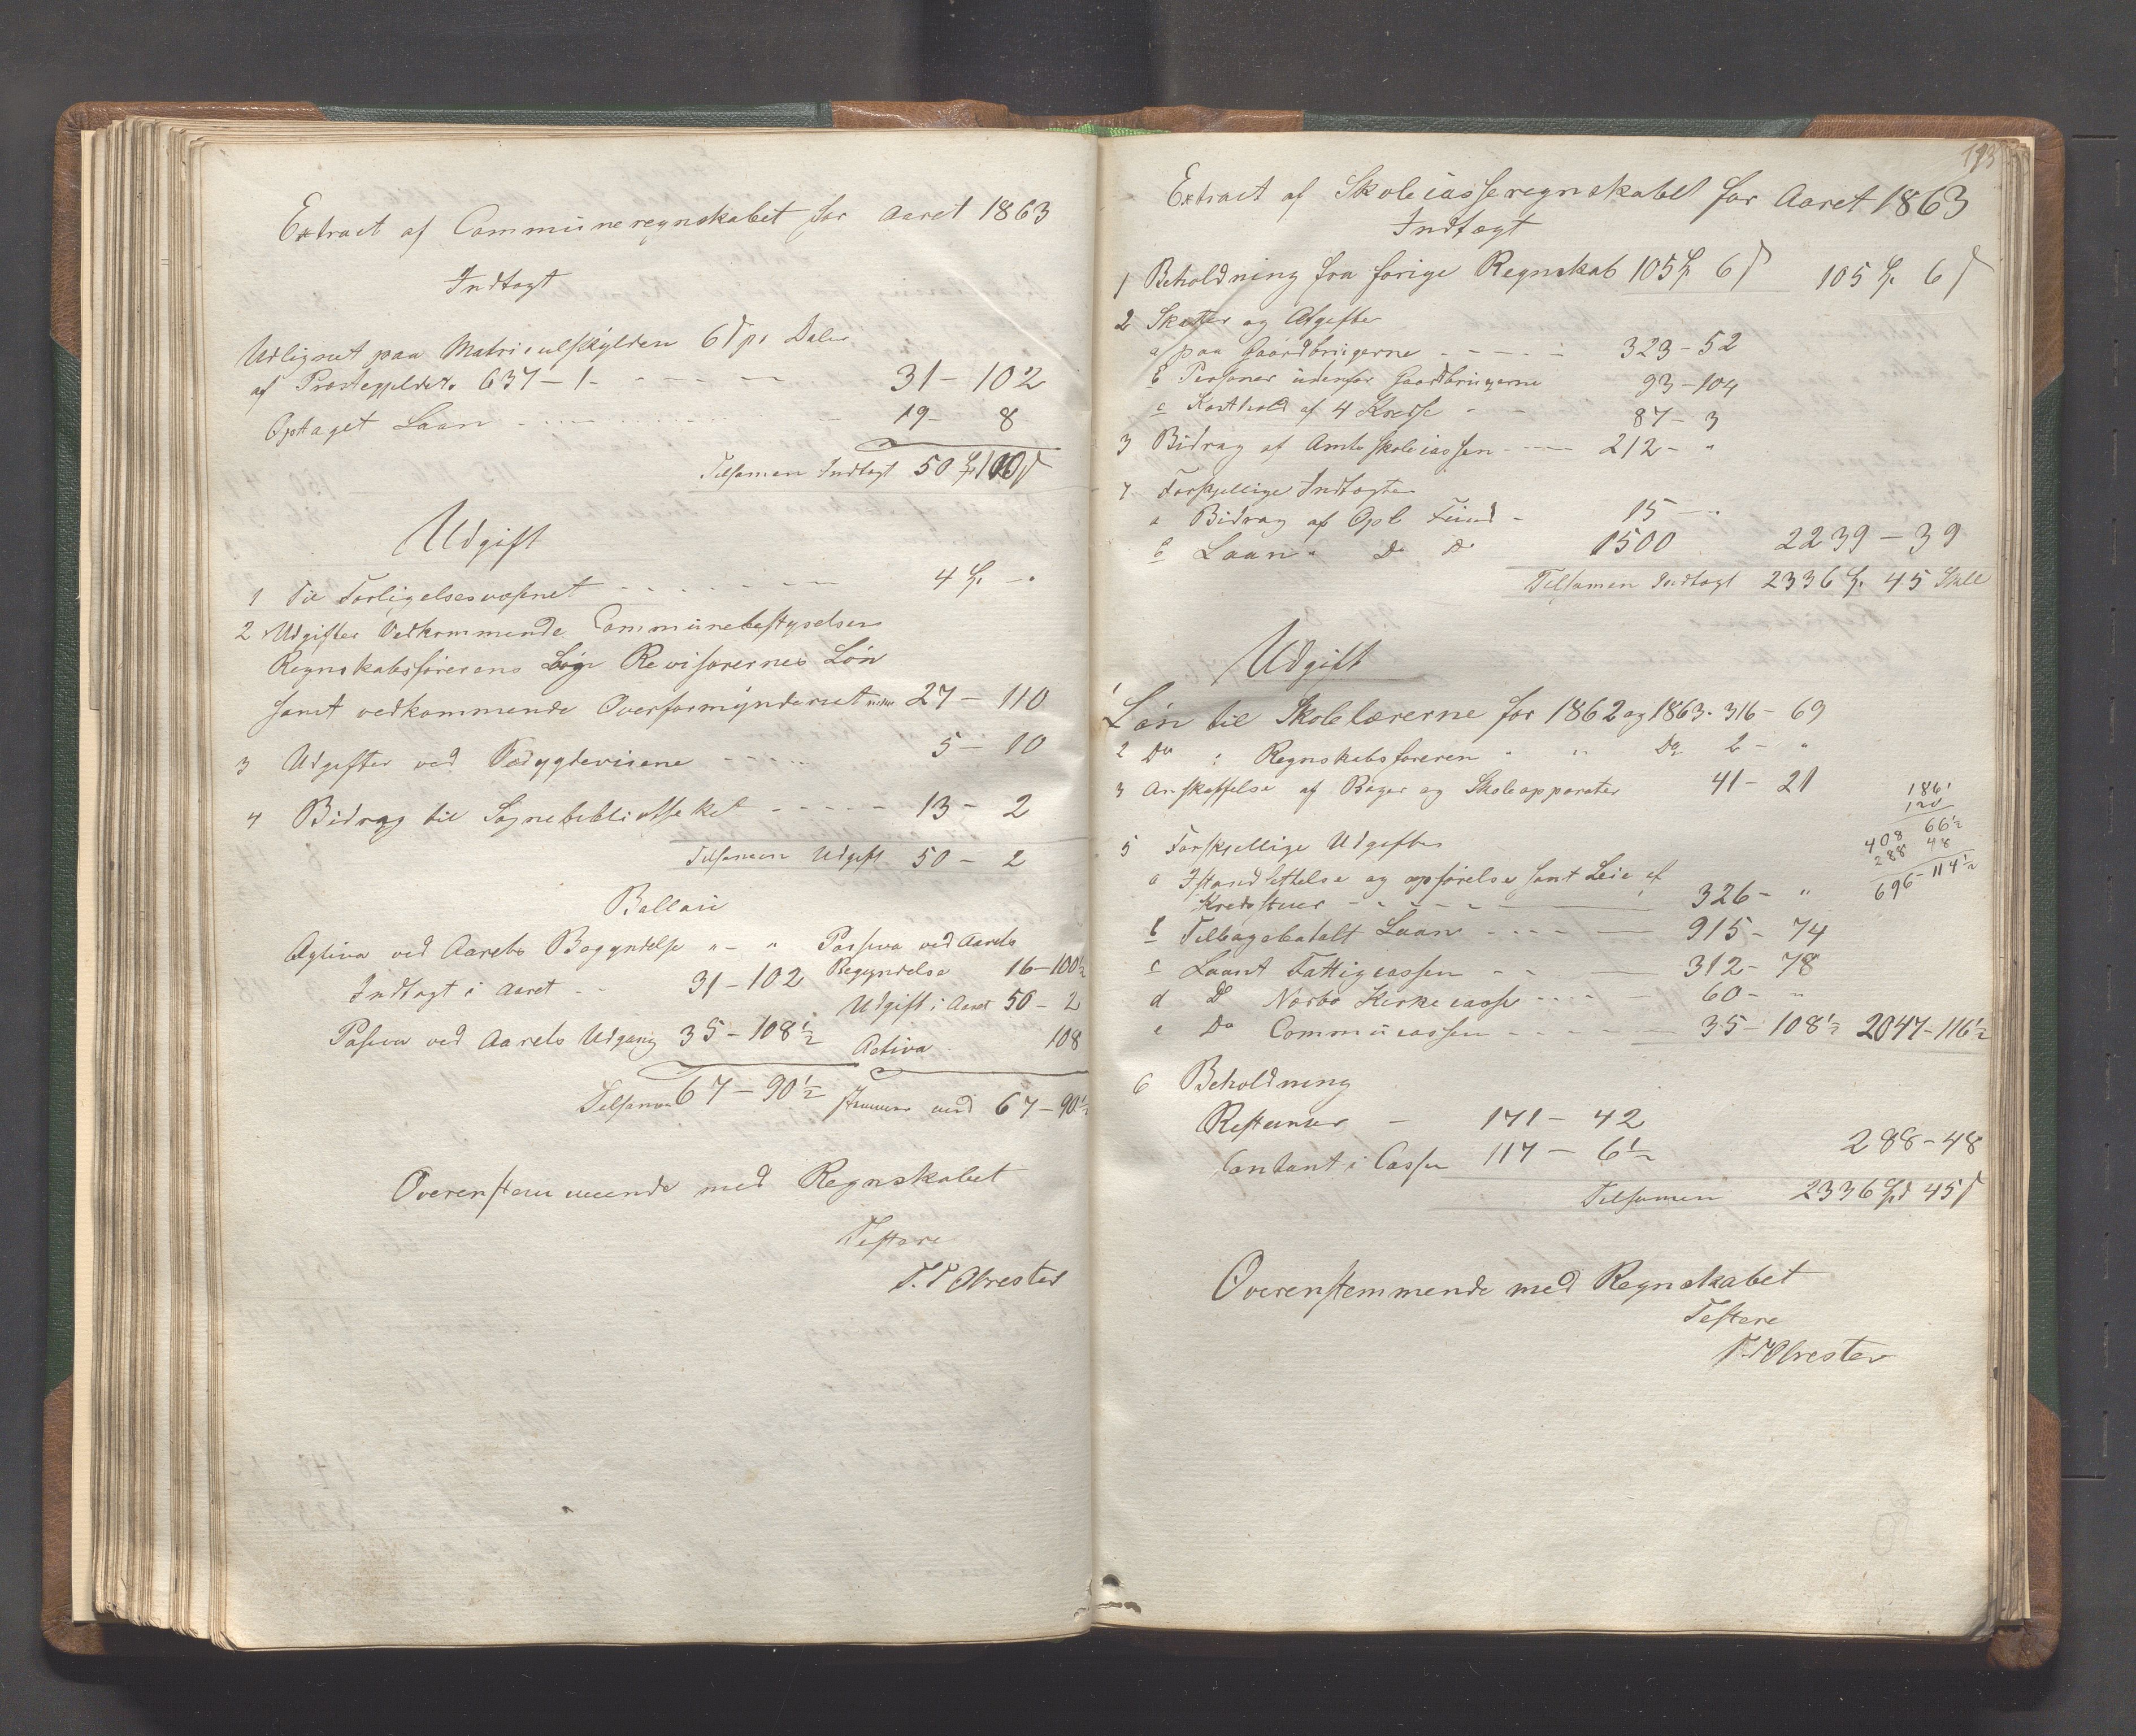 Extract af Communeregnskabet for Aaret 1863
Indtægt
Udlignet paa Matriculskylden 6 s pr Daler
af Præstegjeldets 637 – 1 – 31 – 102
Optaget Laan 19 – 8
Tilsamen Indtægt 50 Sp 110 s
Udgift
1 Til Forligelsesvæsenet 4 Sp – "
2 Udgifter Vedkommende Communebestyrelsen
Regnskabsførerens Løn Revisorernes Løn
samt vedkommende Overformynderiet 27 – 110
3 Udgifter ved 5 – 10
4 Bidrag til Sognebibliotheket 13 – 2
Tilsamen Udgift 50 – 2
Activa ved Aarets Begyndelse " – " Passiva ved Aarets
Begyndelse 16 – 100½
Indtægt i Aaret 31 – 102
Udgift i Aaret 50 – 2
Passiva ved Aarets Udgang 35 – 108½
Activa 108
Tilsamen 67 – 90½ 67 – 90½
Overenstemmende med Regnskabet
Testere
T. T Obrestad
193
Extract af Skolecasseregnskabet for Aaret 1863
Indtægt
1 Beholdning fra forige Regnskab 105 Sp 6 s 105 Sp 6 s
2 Skatter og Afgifter
a paa Gaardbrugerne 323 – 52
b Personer udenfor Gaardbrugerne 93 – 104
c Kosthold af 4 Kredse 87 – 3
3 Bidrag af Amtsskolecassen 212 – "
4 Forskjellige Indtægter
a Bidrag af Opl Fund 15 – "
b Laan " Do Do 1500 2239 – 39
Tilsamen Indtægt 2336 Sp 45 Skll
Udgift
1 Løn til Skolelærerne for 1862 og 1863 316 – 69
2 Do : Regnskabsføreren " " Do 2 – "
3 Anskaffelse af Bøger og Skoleapparater 41 – 21
186½
120
408 66½
288 48
696 – 114½
5 Forskjellige Udgifter
a Istandsettelse og opførelse samt Leie af
Kredsstuer 326 – "
b Tilbagebetalt Laan 915 – 74
c Laant Fattigcassen 312 – 78
d Do Nærbø Kirkecasse 60 – "
e Do Communcassen 35 – 108½ 2047 – 116½
6 Beholdning
Restancer – 171 – 42
Contant i Cassen 117 – 6½ 288 – 48
Tilsamen 2336 Spd 45 s
Overenstemmende med Regnskabet
Testere
T. T Obrestad